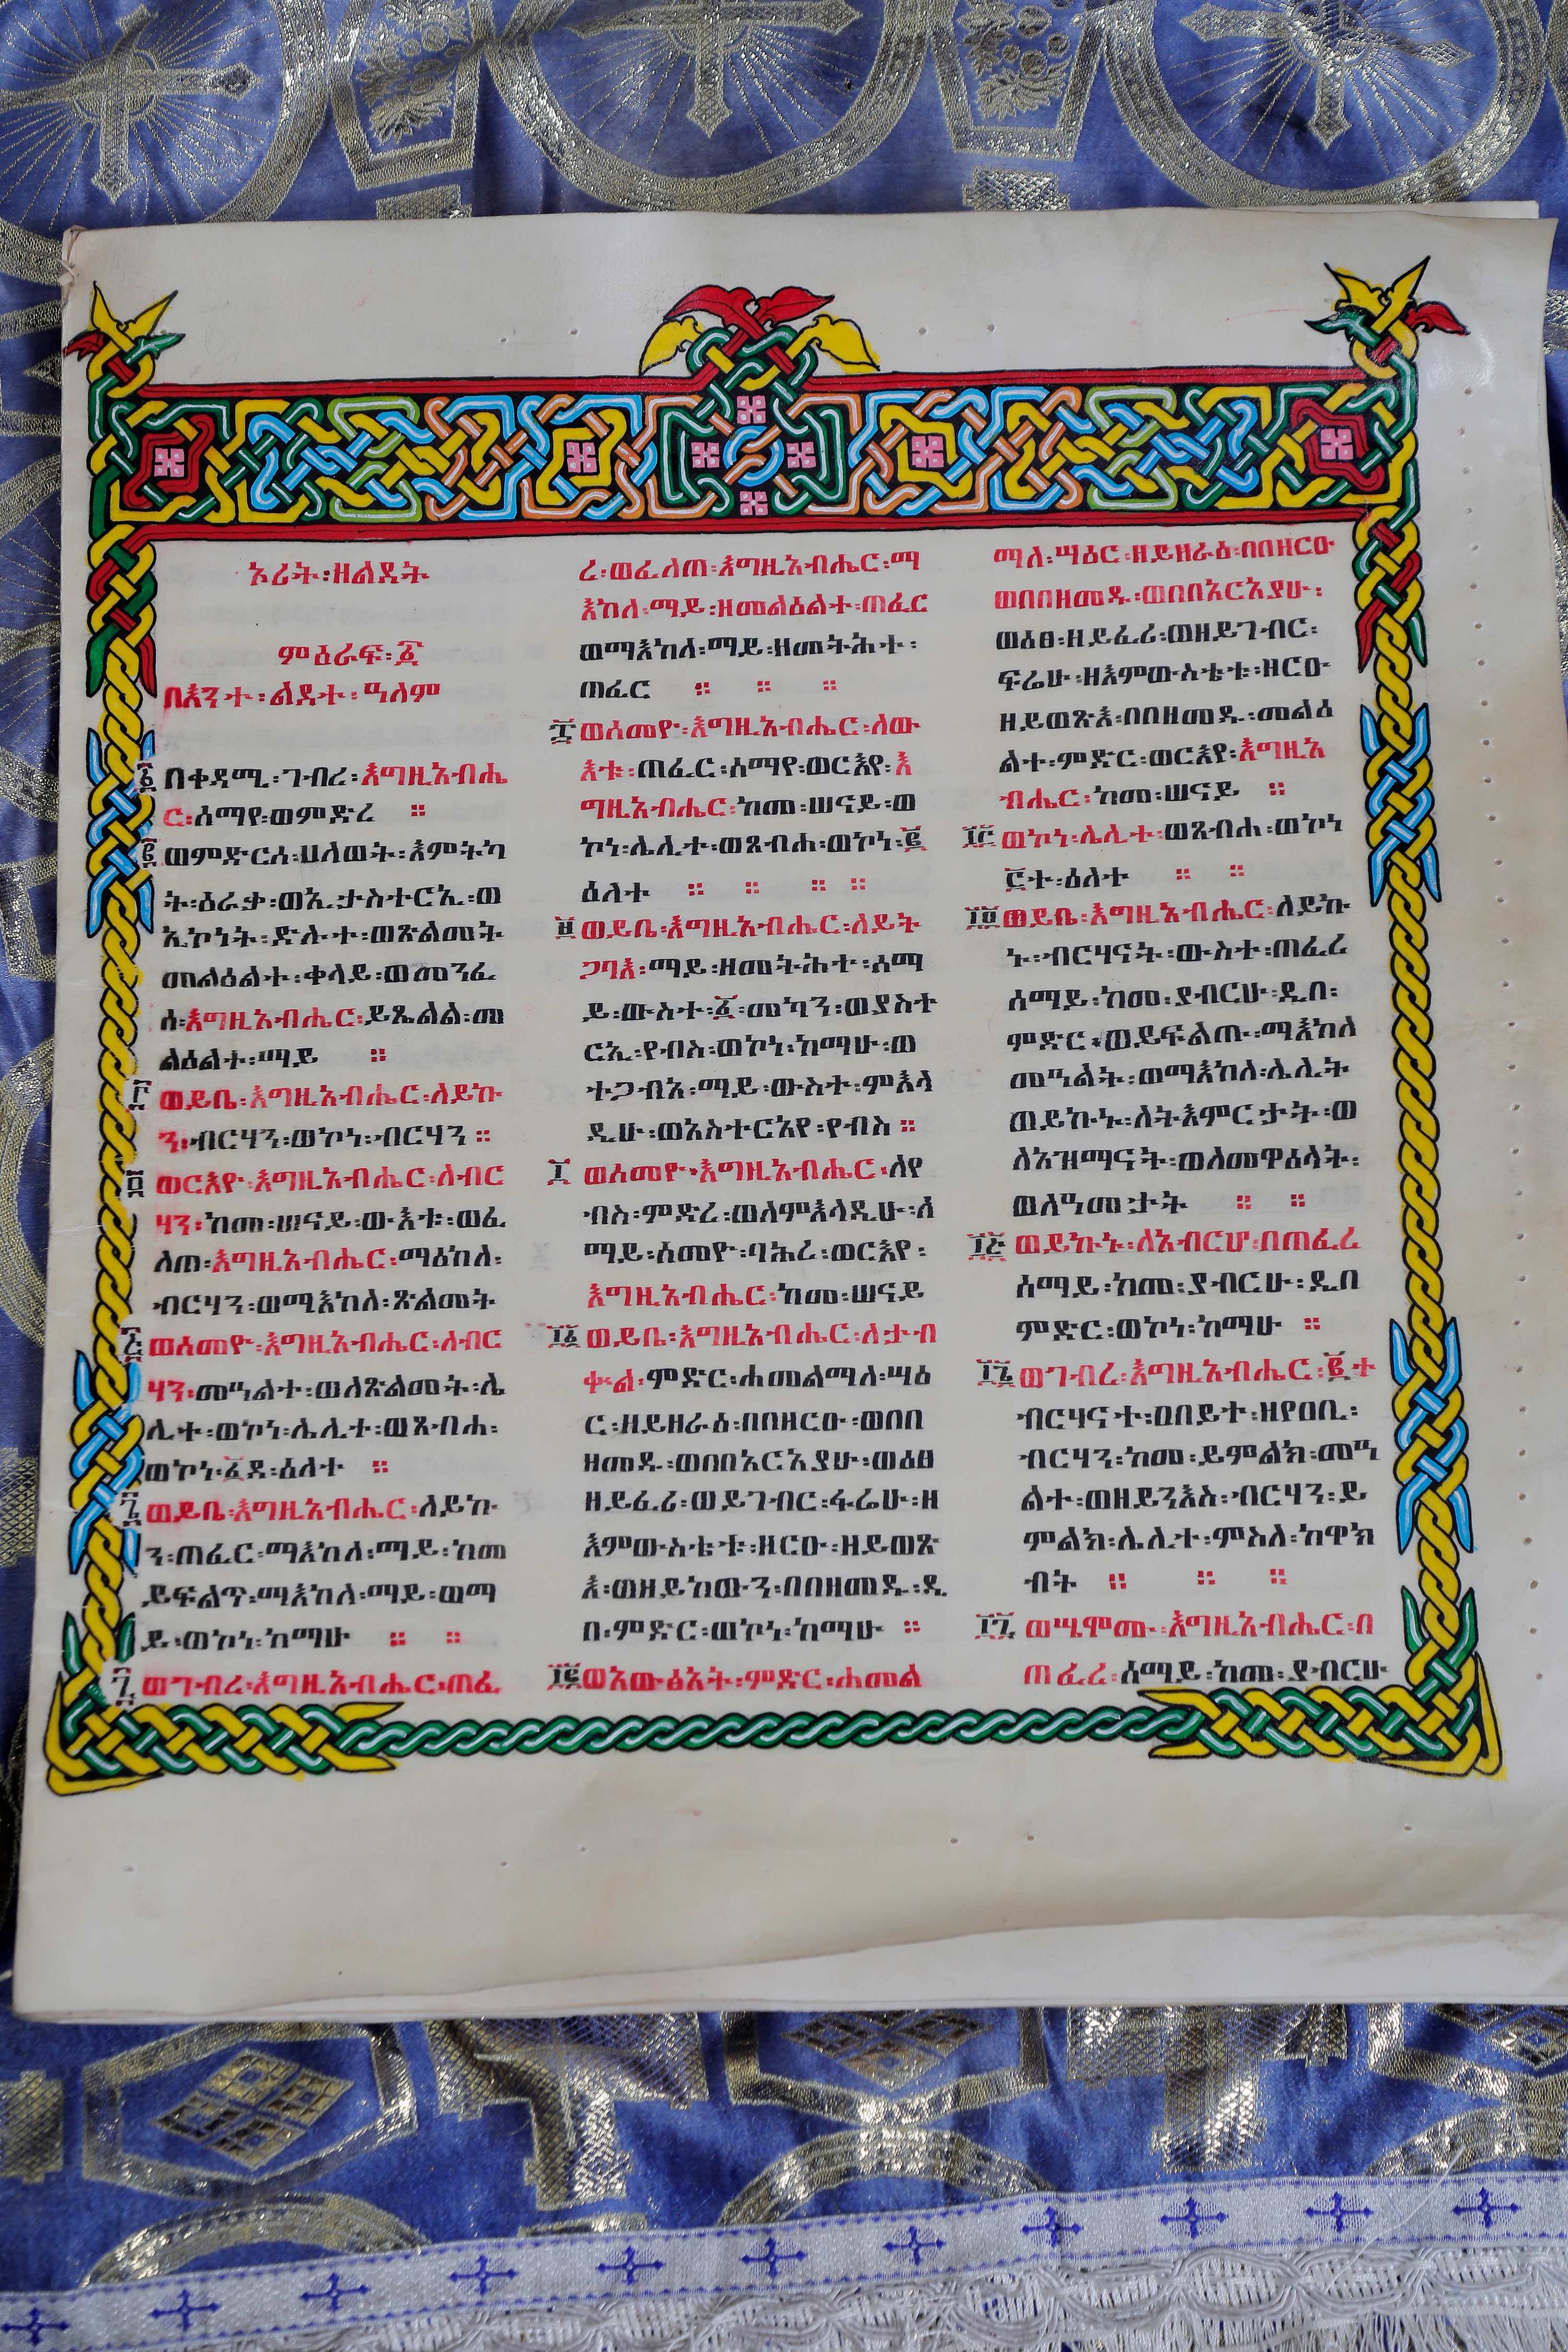 ኦሪት፡ዘልደት
ምዕራፍ፡፩
በእንተ፡ልደተ፡ዓለም
፩ በቀዳሚ፡ገብረ፡እግዚአብሔ
ር፡ሰማየ፡ወምድረ ።
፪ ወምድርሰ፡ሀለወት፡እምትካ
ት፡ዕራቃ፡ወኢታስተርኢ፡ወ
ኢኮነት፡ድሉተ፡ወጽልመት
መልዕልተ፡ቀላይ፡ወመንፈ
ሰ፡እግዚአብሔር፡ይጼልል፡መ
ልዕልተ፡ማይ ።
፫ ወይቤ፡እግዚአብሔር፡ለይኩ
ን፡ብርሃን፡ወኮነ፡ብርሃን ።
፬ ወርእዮ፡እግዚአብሔር፡ለብር
ሃን፡ከመ፡ሠናይ፡ውእቱ፡ወፈ
ለጠ፡እግዚአብሔር፡ማዕከለ፡
ብርሃን፡ወማእከለ፡ጽልመት
፭ ወሰመዮ፡እግዚአብሔር፡ለብር
ሃን፡መዓልተ፡ወለጽልመት፡ሌ
ሊተ፡ወኮነ፡ሌሊተ፡ወጸብሐ፡
ወኮነ፡፩ደ፡ዕለተ ።
፮ ወይቤ፡እግዚአብሔር፡ለይኩ
ን፡ጠፈር፡ማእከለ፡ማይ፡ከመ
ይፍልጥ፡ማእከለ፡ማይ፡ወማ
ይ፡ወኮነ፡ከማሁ ። ።
፯ ወገብረ፡እግዚአብሔር፡ጠፈ
ረ፡ወፈለጠ፡እግዚአብሔር፡ማ
እከለ፡ማይ፡ዘመልዕልተ፡ጠፈር
ወማእከለ፡ማይ፡ዘመትሕተ፡
ጠፈር ። ። ።
፰ ወሰመዮ፡እግዚአብሔር፡ለው
እቱ፡ጠፈር፡ሰማየ፡ወርእየ፡እ
ግዚአብሔር፡ከመ፡ሠናይ፡ወ
ኮነ፡ሌሊተ፡ወጸብሐ፡ወኮነ፡፪
ዕለተ ። ። ። ።
፱ ወይቤ፡እግዚአብሔር፡ለይት
ጋባእ፡ማይ፡ዘመትሕተ፡ሰማ
ይ፡ውስተ፡፩፡መካን፡ወያስተ
ርኢ፡የብስ፡ወኮነ፡ከማሁ፡ወ
ተጋብአ፡ማይ፡ውስተ፡ምእላ
ዲሁ፡ወአስተርአየ፡የብስ ።
፲ ወሰመዮ፡እግዚአብሔር፡ለየ
ብስ፡ምድረ፡ወለምእላዲሁ፡ለ
ማይ፡ሰመዮ፡ባሕረ፡ወርእየ፡
እግዚአብሔር፡ከመ፡ሠናይ
፲፩ ወይቤ፡እግዚአብሔር፡ለታብ
ቍል፡ምድር፡ሐመልማለ፡ሣዕ
ር፡ዘይዘራዕ፡በበዘርዑ፡ወበበ
ዘመዱ፡ወበበአርአያሁ፡ወዕፀ
ዘይፈሪ፡ወይገብር፡ፋሬሁ፡ዘ
እምውስቴቱ፡ዘርዑ፡ዘይወጽ
እ፡ወዘይከውን፡በበዘመዱ፡ዲ
በ፡ምድር፡ወኮነ፡ከማሁ ።
፲፪ ወአውፅአት፡ምድር፡ሐመል
ማለ፡ሣዕር፡ዘይዘራዕ፡በበዘርዑ
ወበበዘመዱ፡ወበበአርአያሁ፡
ወዕፀ፡ዘይፈሪ፡ወዘይገብር፡
ፍሬሁ፡ዘእምውስቴቱ፡ዘርዑ
ዘይወጽእ፡በበዘመዱ፡መልዕ
ልተ፡ምድር፡ወርእየ፡እግዚአ
ብሔር፡ከመ፡ሠናይ ።
፲፫ ወኮነ፡ሌሊተ፡ወጸብሐ፡ወኮነ
፫ተ፡ዕለተ ። ።
፲፬ ወይቤ፡እግዚአብሔር፡ለይኩ
ኑ፡ብርሃናት፡ውስተ፡ጠፈረ
ሰማይ፡ከመ፡ያብርሁ፡ዲበ፡
ምድር፡ወይፍልጡ፡ማእከለ
መዓልት፡ወማእከለ፡ሌሊት
ወይኩኑ፡ለትእምርታት፡ወ
ለአዝማናት፡ወለመዋዕላት፡
ወለዓመታት ። ።
፲፭ ወይኩኑ፡ለአብርሆ፡በጠፈረ
ሰማይ፡ከመ፡ያብርሁ፡ዲበ
ምድር፡ወኮነ፡ከማሁ ።
፲፮ ወገብረ፡እግዚአብሔር፡፪ተ
ብርሃናተ፡ዐበይተ፡ዘየዐቢ፡
ብርሃን፡ከመ፡ይምልክ፡መዓ
ልተ፡ወዘይንእስ፡ብርሃን፡ይ
ምልክ፡ሌሊተ፡ምስለ፡ከዋክ
ብት ። ። ።
፲፯ ወሤሞሙ፡እግዚአብሔር፡በ
ጠፈረ፡ሰማይ፡ከመ፡ያብርሁ